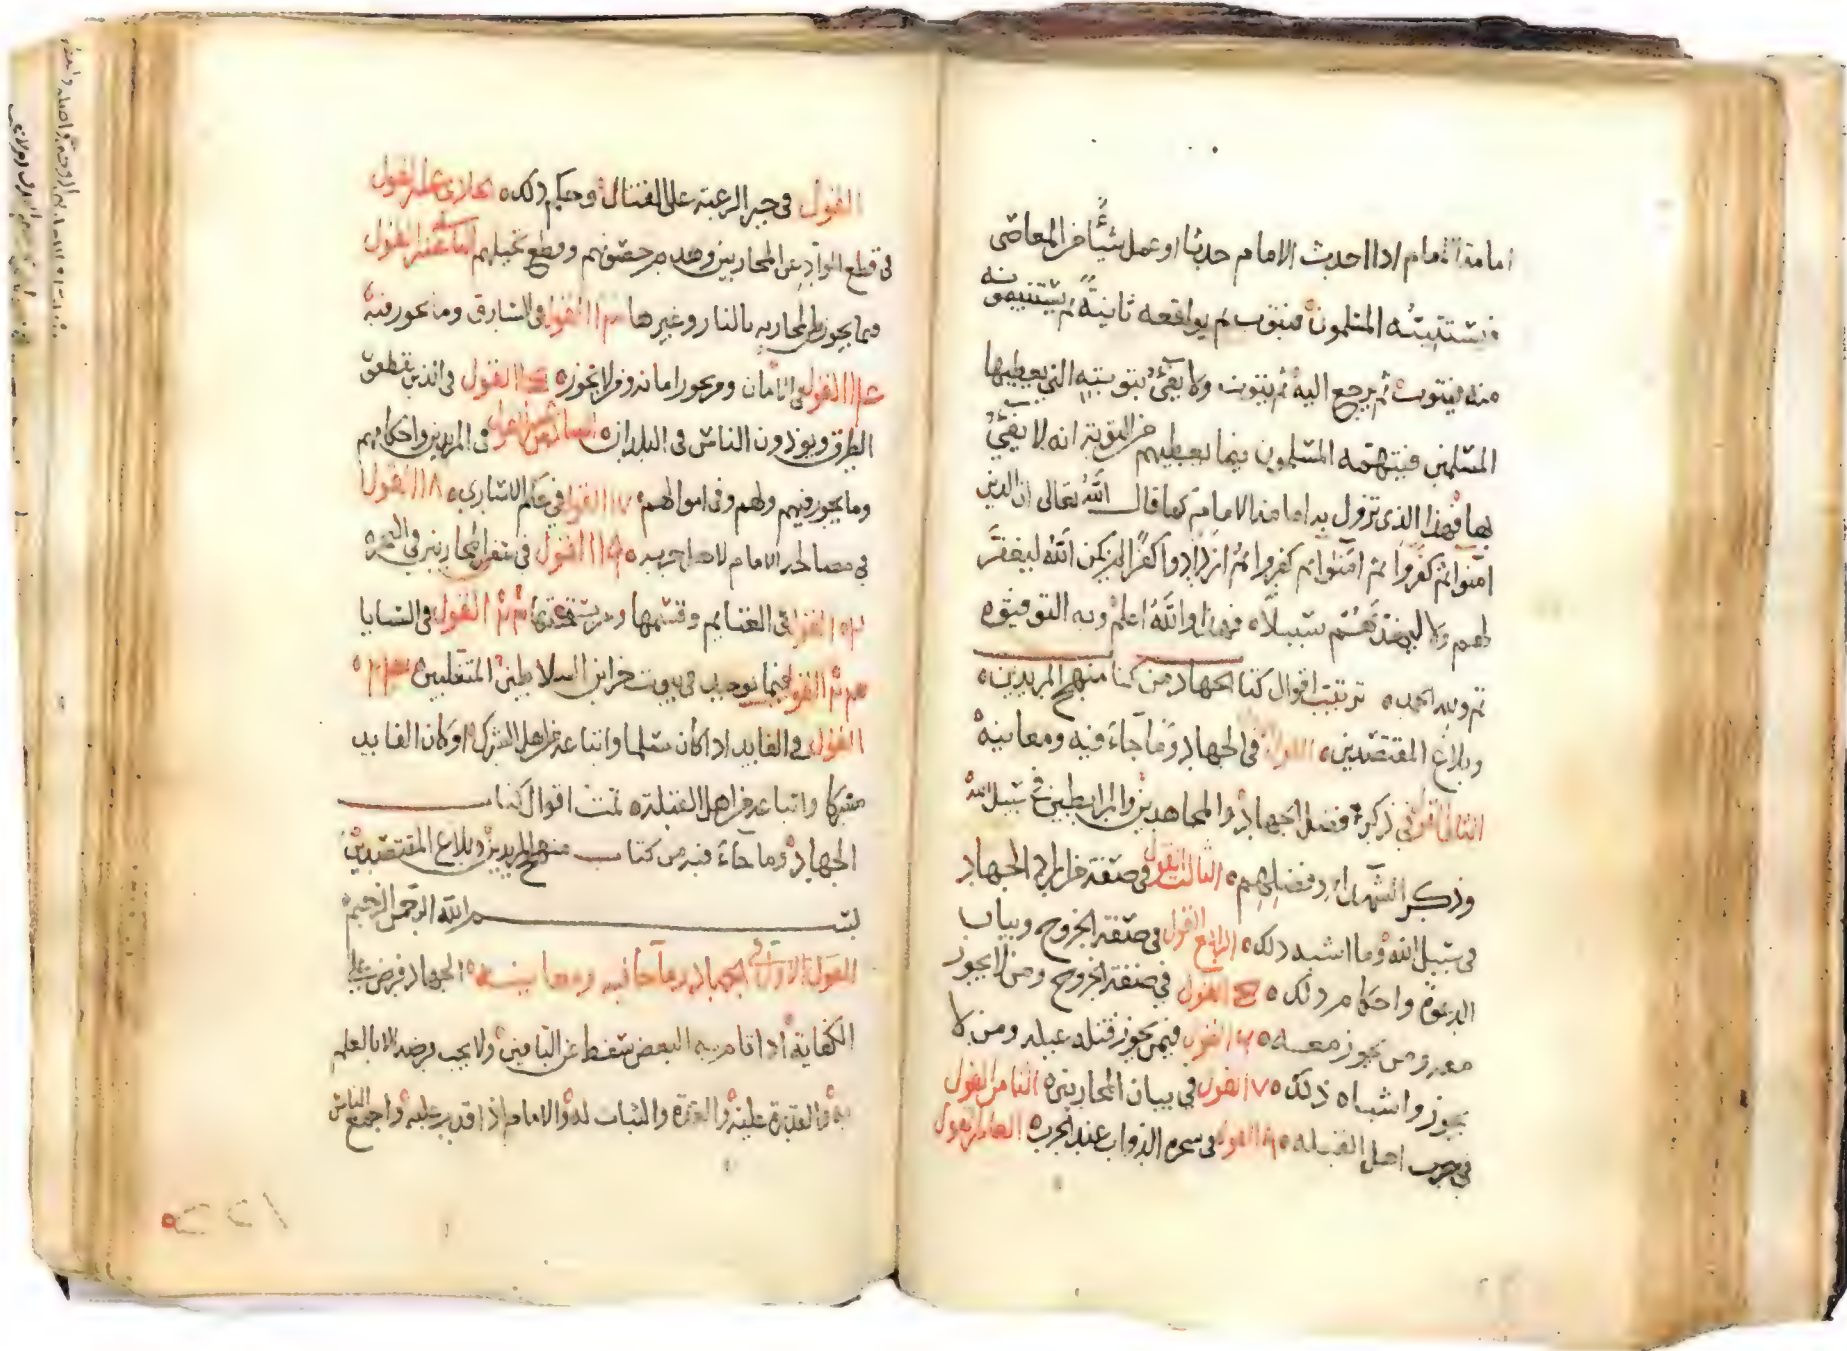 امامة الامام اذا احدث الامام حدثا او عمل شيئا من المعاصى
فيستتيبه المسلمون فيتوب ثم يواقعه ثانية ثم يستتيبونه
منه فيتوب ثم يرجع اليه ثم يتوب ولا يفئ بتوبته التي يعطيها
المسلمين فيتهمه المسلمون فيما يعطيهم من التوبة انه لا يفئ
بها فهذا الذى تزول به امامة الامام كما قال الله تعالى ان الذين
امنوا ثم كفروا ثم امنوا ثم كفروا ثم ازدادوا كفرا لم يكن الله ليغفر
لهم ولا ليهديهم سبيلا فهذا والله اعلم وبه التوفيق
تم ولله الحمد ترتيب اقوال كتاب الجهاد من كتاب منهج المريدين
وبلاغ المقتصدين الاول في الجهاد وما جاء فيه ومعانيه
الثانى القول في ذكر فضل الجهاد والمجاهدين والمرابطين في سبيل الله
وذكر الشهداء وفضلهم الثالث القول في صفة من اراد الجهاد
في سبيل الله وما اشبه ذلك الرابع القول في صفة الخروج وبيان
الدعوة واحكام ذلك القول في صفة الخروج ومن لا يجوز
معه ومن يجوز معه ٦ القول فيمن يجوز قتله غيلة ومن لا
يجوز واشباه ذلك ٧ القول في بيان المحاربين الثامن القول
في حرب اهل القبلة ٩ القول في الدواب عند الحرب العاشر القول
القول في جبر الرعية على القتال وحكم ذلك الحادى عشر القول
في قطع المواد عن المحاربين وهدم حصونهم وقطع نخيلهم الثانى عشر القول
فيما يجوز المحاربه بالنار وغيرها ١٣ القول في السارق وما يجوز فيه
١٤ القول في الامان ومن يجوز امانه ومن لا يجوز القول في الذين يقطعون
الطرق ويوذون الناس في البلدان السادس عشر القول في المرتدين واحكامهم
وما يجوز فيهم ولهم وفى اموالهم ١٧ القول في حكم الاسارى ١٨ القول
في مصالحة الامام لاهل حربه ١٩ القول في سفر المحاربين في البحر
٢٠ القول في الغنايم وقسمها ومن يستحقها القول في السبايا
القول فيما يوجد في بيوت خزاين السلاطين المتغلبين ٢٣
القول في القايد اذا كان مسلما واتباعه من اهل الشرك او كان القايد
مشركا واتباعه من اهل القبلة تمت اقوال كتاب
الجهاد وما جاء فيه من كتاب منهج المريدين وبلاغ المقتصدين
بسم الله الرحمن الرحيم
القول الاول في الجهاد وما جا فيه ومعانيه الجهاد فرض على
الكفاية اذا قام به البعض سقط عن الباقين ولا يجب فرضه الا بالعلم
به والقدرة عليه والعدة والثبات له والامام اذا قدر عليه واجمع الناس